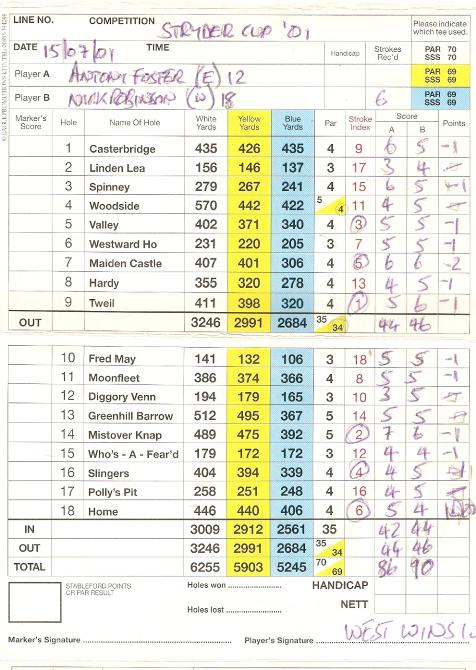 LINE NO. COMPETITION STRYDER CUP '01 Please indicate which tee used.
DATE 15/07/01 TIME Handicap Strokes Rec'd PAR 70 SSS 70
Player A ANTONY FOSTER (E) 12 PAR 69 SSS 69
Player B NICK ROBINSON (W) 18 6 PAR 69 SSS 69
Marker's Score Hole Name Of Hole White Yards Yellow Yards Blue Yards Par Stroke Index Score A B Points
1 Casterbridge 435 426 435 4 9 6 5 -1
2 Linden Lea 156 146 137 3 17 3 4
3 Spinney 279 267 241 4 15 6 5 -1
4 Woodside 570 442 422 5 4 11 4 5
5 Valley 402 371 340 4 3 5 5 -1
6 Westward Ho 231 220 205 3 7 5 5 -1
7 Maiden Castle 407 401 306 4 5 6 6 -2
8 Hardy 355 320 278 4 13 4 5 -1
9 Tweil 411 398 320 4 1 5 6 -1
OUT 3246 2991 2684 35 34 44 46
10 Fred May 141 132 106 3 18 5 5 -1
11 Moonfleet 386 374 366 4 8 5 5 -1
12 Diggory Venn 194 179 165 3 10 3 5
13 Greenhill Barrow 512 495 367 5 14 5 5
14 Mistover Knap 489 475 392 5 2 7 6 -1
15 Who's - A - Fear'd 179 172 172 3 12 4 4 -1
16 Slingers 404 394 339 4 4 4 5 -1
17 Polly's Pit 258 251 248 4 16 4 5
18 Home 446 440 406 4 6 5 4
IN 3009 2912 2561 35 42 44
OUT 3246 2991 2684 35 34 44 46
TOTAL 6255 5903 5245 70 69 86 90
STABLEFORD POINTS OR PAR RESULT Holes won HANDICAP
Holes lost NETT
WEST WINS
Marker's Signature Player's Signature